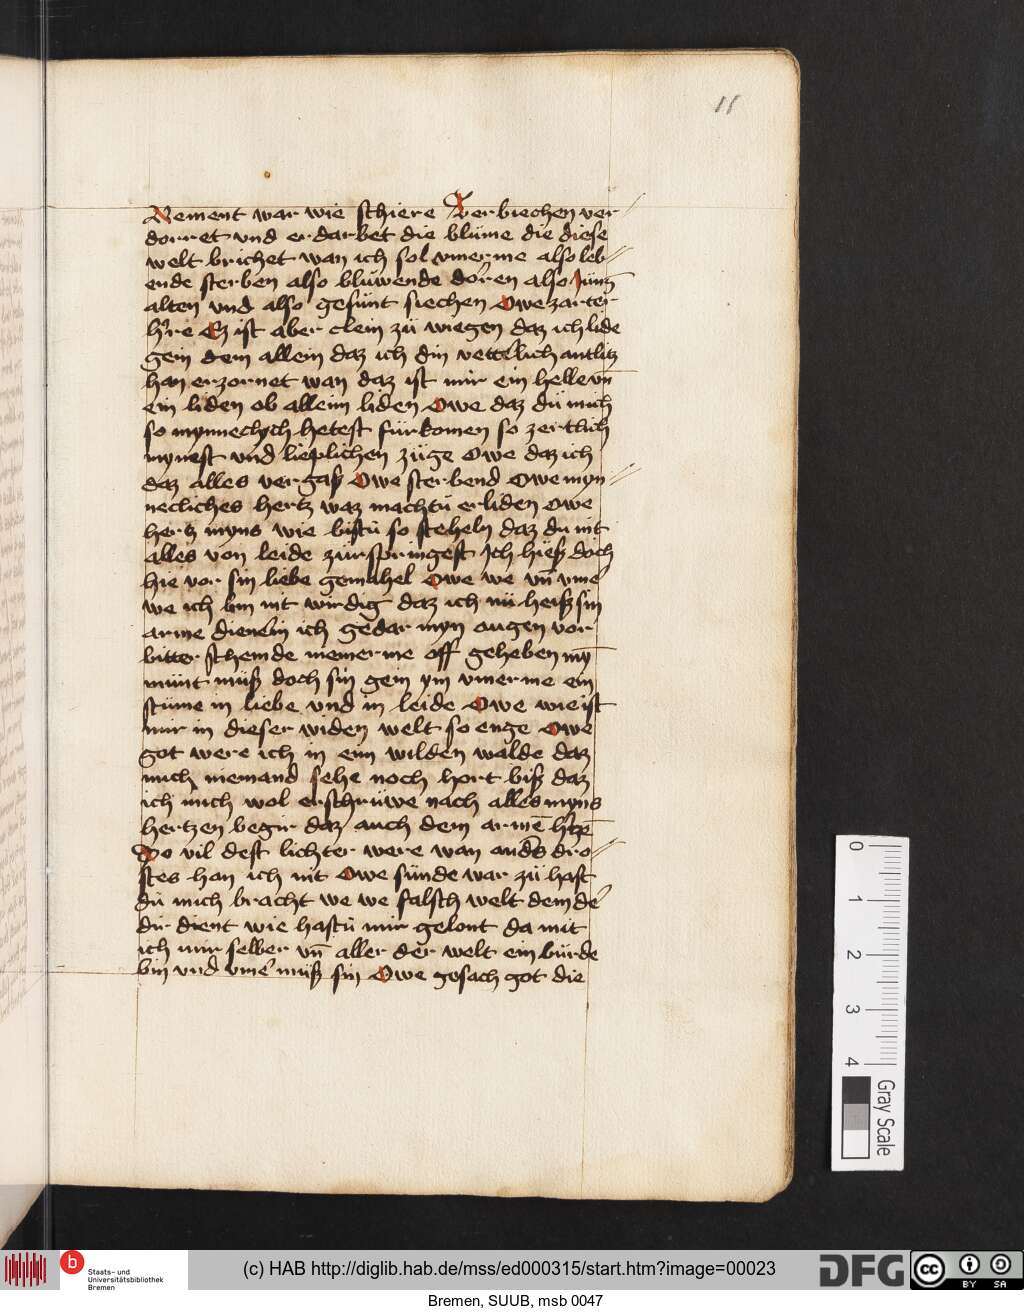 11
Nement war wie schiere Verbiechen ver
dorret vnd erdarbet die blůme die diese
welt brichet wan ich sol vmerme also leb//
ende sterben also blůwende dorren also Jūng
alten vnd also gesunt siechen Owe zarter
hrre Ez ist aber clein zů wiegen daz ich lide
gein dem allein daz ich din vetterlich antlitz
han erzornet wan daz ist mir ein helle vn̄
ein liden ob alleim liden Owe daz dů mich
so mynneclych hetest fürkomen so zertlich
mynest vnd lieplichen zůge Owe daz ich
daz alles vergaß Owe sterbend Owe myn//
necliches hertz waz machtů erliden Owe
hertz myns wie bistů so steheln daz du nit
alles von leide zůrspringest Ich hieß doch
hie vor sin liebe gemahel Owe we vn̄ vme
we ich bin nit wirdig daz ich nů heiß sin
arme dienerin ich gedar myn augen vor
bitter schemde niemerme off geheben my̅
munt můß doch sin gein ym vmerme ein
stůme in liebe vnd in leide Owe wie ist
mir in dieser widen welt so enge Owe
got were ich in eim wilden walde daz
mich niemand sehe noch hort biß daz
ich mich wol erschrůwe nach alles myns
hertzen begir daz auch dem arme̅ htze̅
So vil dest lichter were wan anders dro//
stes han ich nit Owe sünde war zů hast
dů mich bracht we we falsch welt dem de
dir dient wie hastů mir gelont da mit
ich mir selber vn̄ aller der welt ein bürde
bin vnd vme můß sin Owe gesach got die
0 1 2 3 4 Gray Scale
b Staats- und Universitätsbibliothek Bremen
(c) HAB http://diglib.hab.de/mss/ed000315/start.htm?image=00023
DFG
cc BY SA
Bremen, SUUB, msb 0047